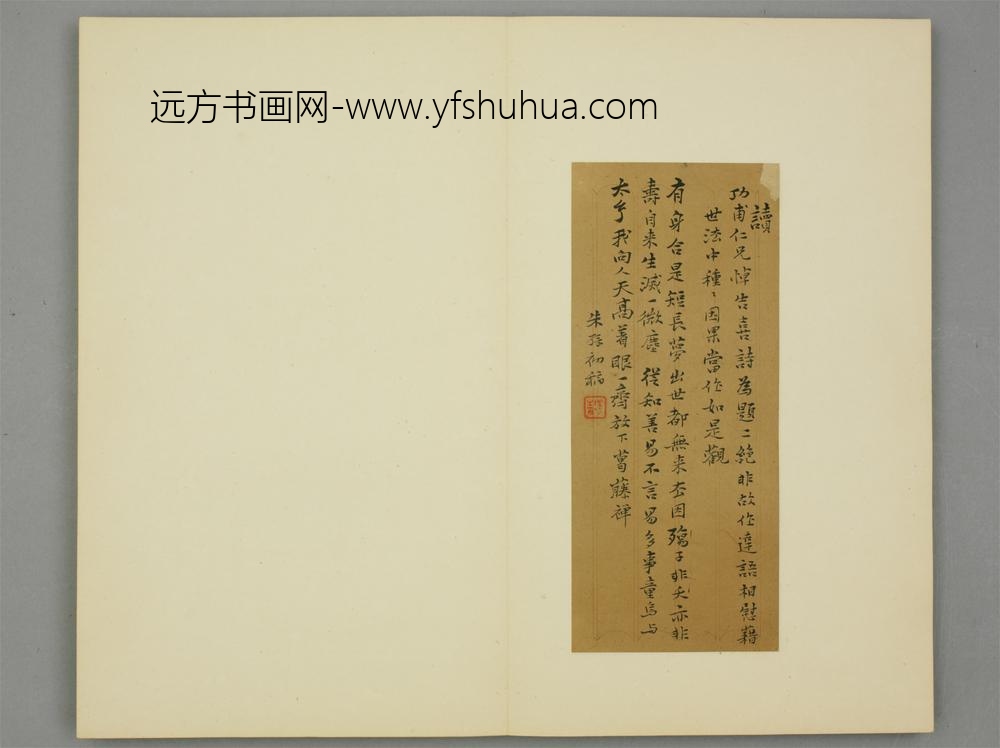 远方书画网-www.yfshuhua.com
讀
功甫仁兄悼告喜詩為題二絶非故作達語相慰藉
世法中種〻因果當作如是觀
有身合是短長夢出世都無来去因殤子非夭亦非
壽自来生滅一微塵 從知善易不言易多事童烏与
太𤣥我向人天高着眼一齊放下葛藤禅
朱 初稿